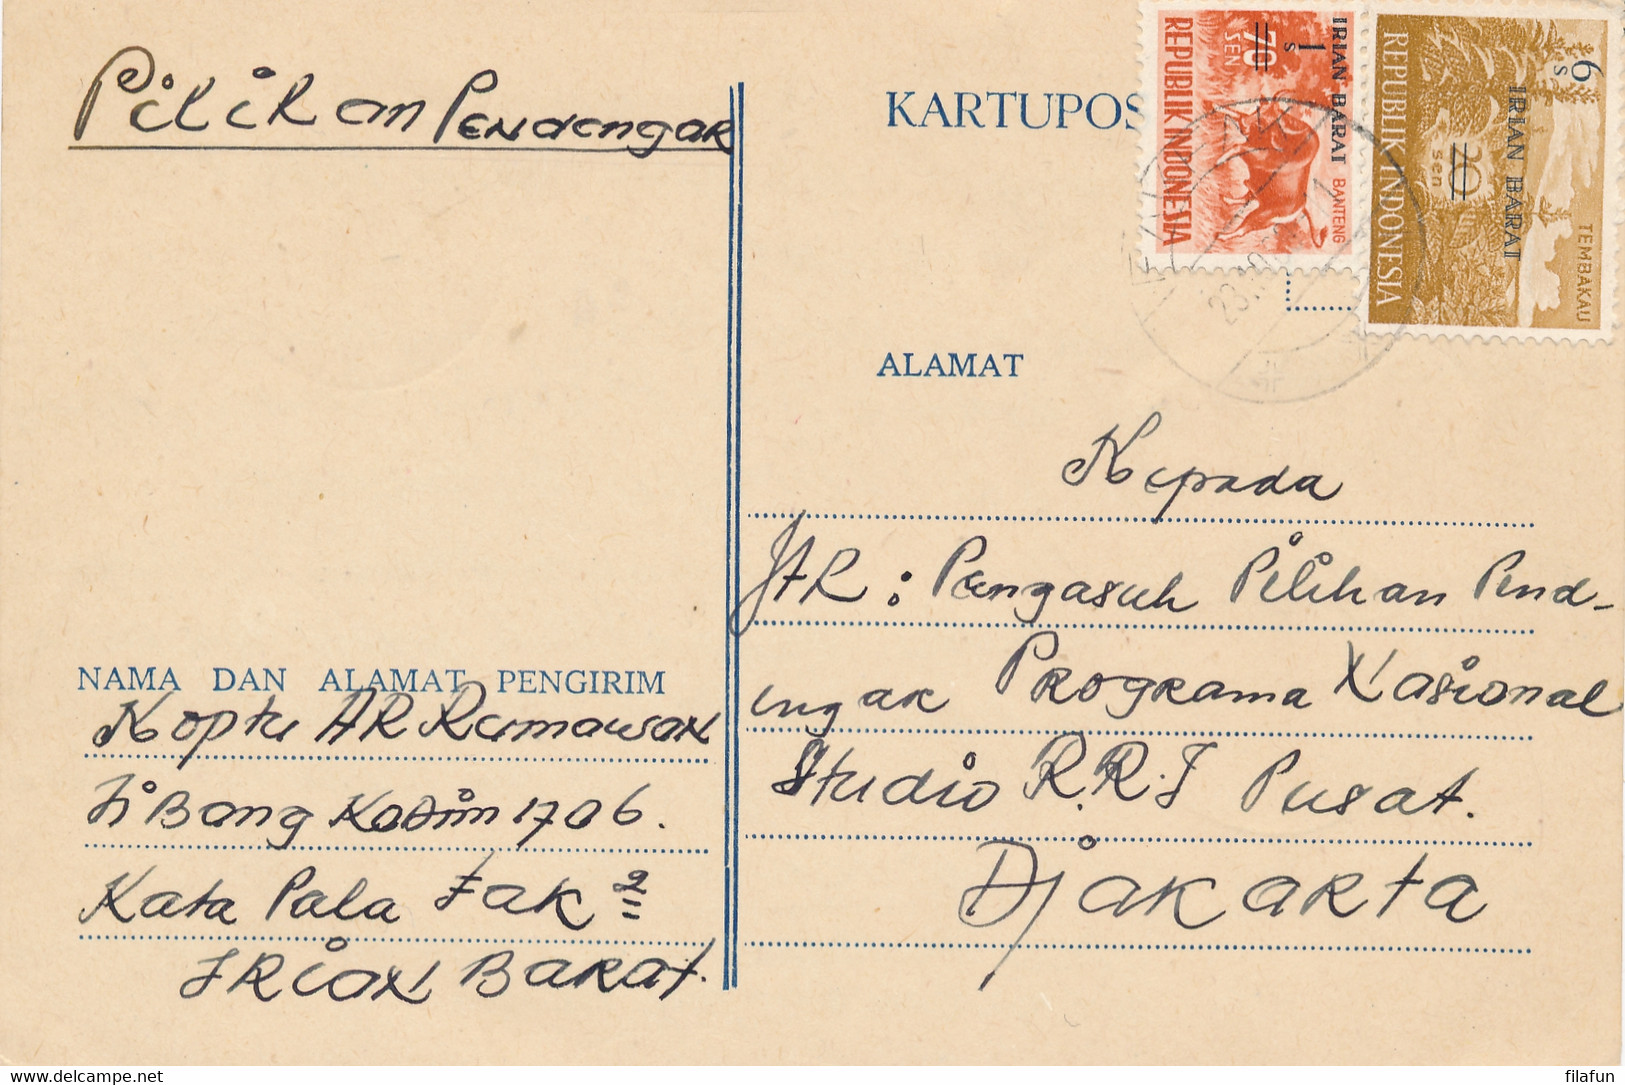 Pilihan Pendengar
KARTUPOS
IRIAN BARAT
1 s
70 SEN
REPUBLIK INDONESIA
BANTENG
6 s
IRIAN BARAT
20 sen
REPUBLIK INDONESIA
TEMBAKAU
23.
ALAMAT
Kepada
Jtr : Pengasuh Pilihan Pend-
engar Programa Nasional
Studio R.R.I Pusat.
Djakarta
NAMA DAN ALAMAT PENGIRIM
Koptu AR Rumawak
Kodim 1706.
Kata Pala Fak 2
IRIAN BARAT.
delcampe.net
filafun